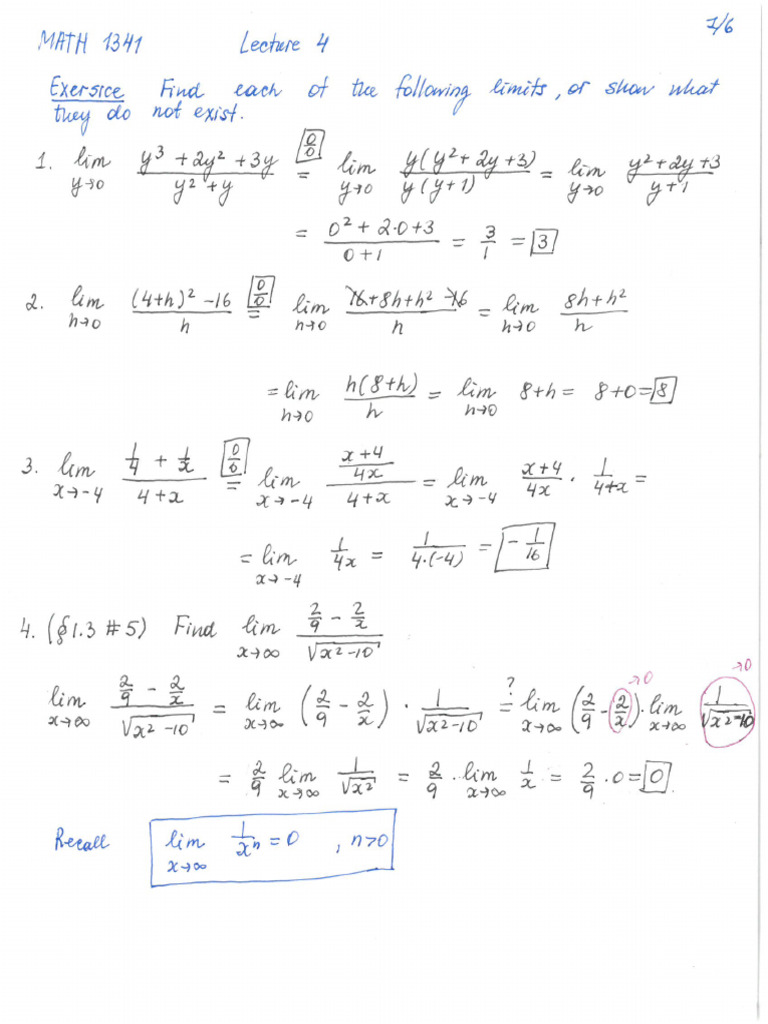 1/6
MATH 1341 Lecture 4
Exersice Find each of the following limits, or show what
they do not exist.
1. lim y→0 (y³ + 2y² + 3y)/(y² + y) = [0/0] lim y→0 y(y² + 2y + 3)/y(y+1) = lim y→0 (y² + 2y + 3)/(y+1)
= (0² + 2·0 + 3)/(0+1) = 3/1 = 3
2. lim h→0 ((4+h)² - 16)/h = [0/0] lim h→0 (16 + 8h + h² - 16)/h = lim h→0 (8h + h²)/h
= lim h→0 h(8+h)/h = lim h→0 8+h = 8+0 = 8
3. lim x→-4 (1/4 + 1/x)/(4+x) = [0/0] lim x→-4 ((x+4)/4x)/(4+x) = lim x→-4 (x+4)/4x · 1/(4+x) =
= lim x→-4 1/4x = 1/(4·(-4)) = -1/16
4. (§1.3 #5) Find lim x→∞ (2/9 - 2/x)/√(x²-10)
lim x→∞ (2/9 - 2/x)/√(x²-10) = lim x→∞ (2/9 - 2/x) · 1/√(x²-10) =? lim x→∞ (2/9 - 2/x) →0 · lim x→∞ 1/√(x²-10) →0
= 2/9 lim x→∞ 1/√x² = 2/9 · lim x→∞ 1/x = 2/9 · 0 = 0
Recall lim x→∞ 1/xⁿ = 0 , n>0